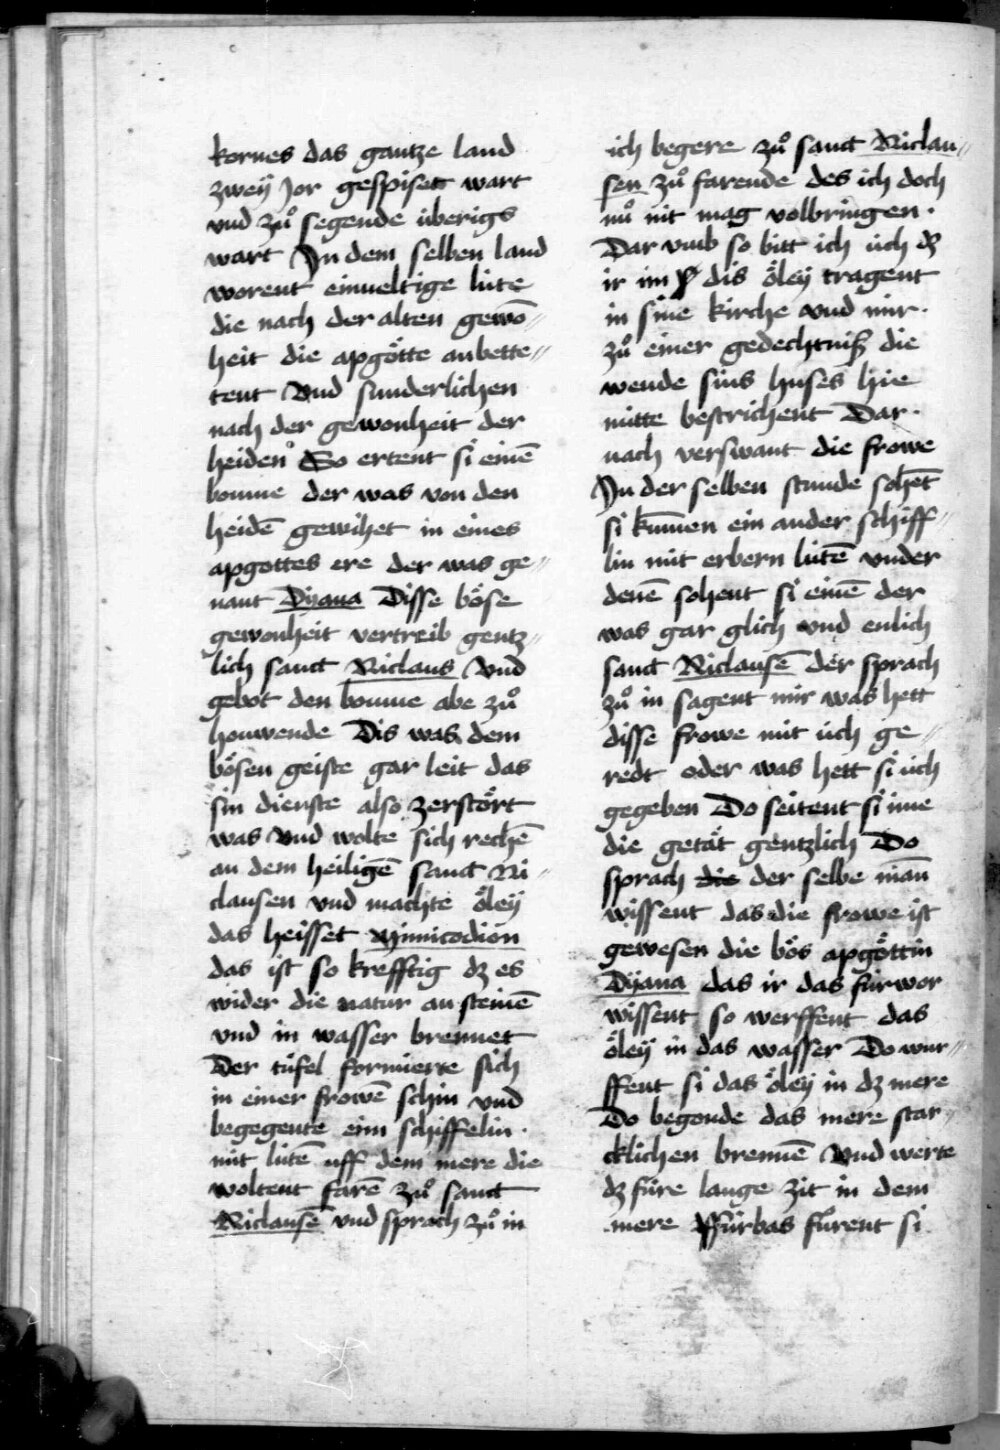 kornes das gantze land
zweÿ Jor gespiset wart
vnd zů segende überigs
wart Jn dem selben land
worent einueltige lúte
die nach der alten gewō〃
heit die apgötte anbette〃
tent Vnd sunderlichen
nach der gewonheit der
heiden So ertent si einē
boume der was von den
heidē gewihet in eines
apgottes ere der was ge〃
nant Dÿana Disse böse
gewonheit vertreib gentz〃
lich sanct Niclaus Vnd
gebot den boume abe zů
houwende Dis was dem
bösen geiste gar leit das
sin dienste also zerstört
was Vnd wolte sich rechē
an dem heiligē sanct Ni〃
clausen vnd machte öleÿ
das heisset Minnicodion
das ist so krefftig dz es
wider die natur an steinē
vnd in wasser brennet
Der túfel formierte sich
in einer frowē schin vnd
begegente eim schiffelin.
mit lútē uff dem mere die
woltent farē zů sanct
Niclausē vnd sprach zů in
ich begere zů sanct Niclau〃
sen zů farende des ich doch
nů nit mag volbringen.
Dar vmb so bitt ich úch dz
ir im dis öleÿ tragent
in sine kirche vnd mir.
zů einer gedechtniß die
wende sins huses hie
mitte bestrichent Dar.
nach verswant die frowe
Jn der selben stunde sohēt
si kūmen ein ander schiff〃
lin mit erbern lútē vnder
denē sohent si einē der
was gar glich vnd enlich
sanct Niclausē der sprach
zů in sagent mir was hett
disse frowe mit úch ge〃
redt oder was hett si úch
gegeben Do seitent si ime
die getät gentzlich Do
sprach die der selbe man̄
wissent das die frowe ist
gewesen die bös apgöttin
Dÿana das ir das fúrwor
wissent so werffent das
öleÿ in das wasser Do wur〃
ffent si das öleÿ in dz mere
Do begonde das mere star〃
cklichen brennē Vnd werte
dz fúre lange zit in dem
mere Fúrbas fůrent si